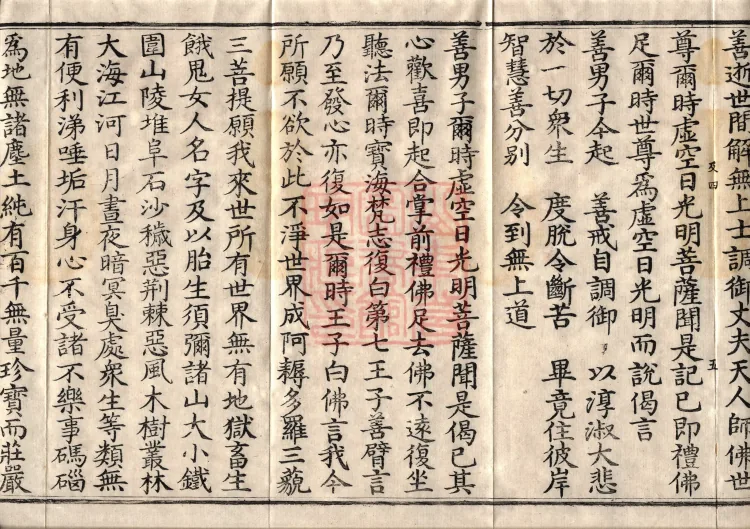 善逝世間解無上士調御丈夫天人師佛世
五
尊爾時虛空日光明菩薩聞是記已即禮佛
足爾時世尊爲虛空日光明而說偈言
善男子今起　善戒自調御　以淳淑大悲
於一切衆生　度脫令斷苦　畢竟住彼岸
智慧善分別　令到無上道
善男子爾時虛空日光明菩薩聞是偈已其
心歡喜即起合掌前禮佛足去佛不遠復坐
聽法爾時寶海梵志復白第七王子善臂言
乃至發心亦復如是爾時王子白佛言我今
所願不欲於此不淨世界成阿耨多羅三藐
三菩提願我來世所有世界無有地獄畜生
餓鬼女人名字及以胎生須彌諸山大小鐵
圍山陵堆阜石沙穢惡荊棘惡風木樹叢林
大海江河日月晝夜暗冥臭處衆生等類無
有便利涕唾垢汗身心不受諸不樂事碼碯
爲地無諸塵土純有百千無量珍寶而莊嚴